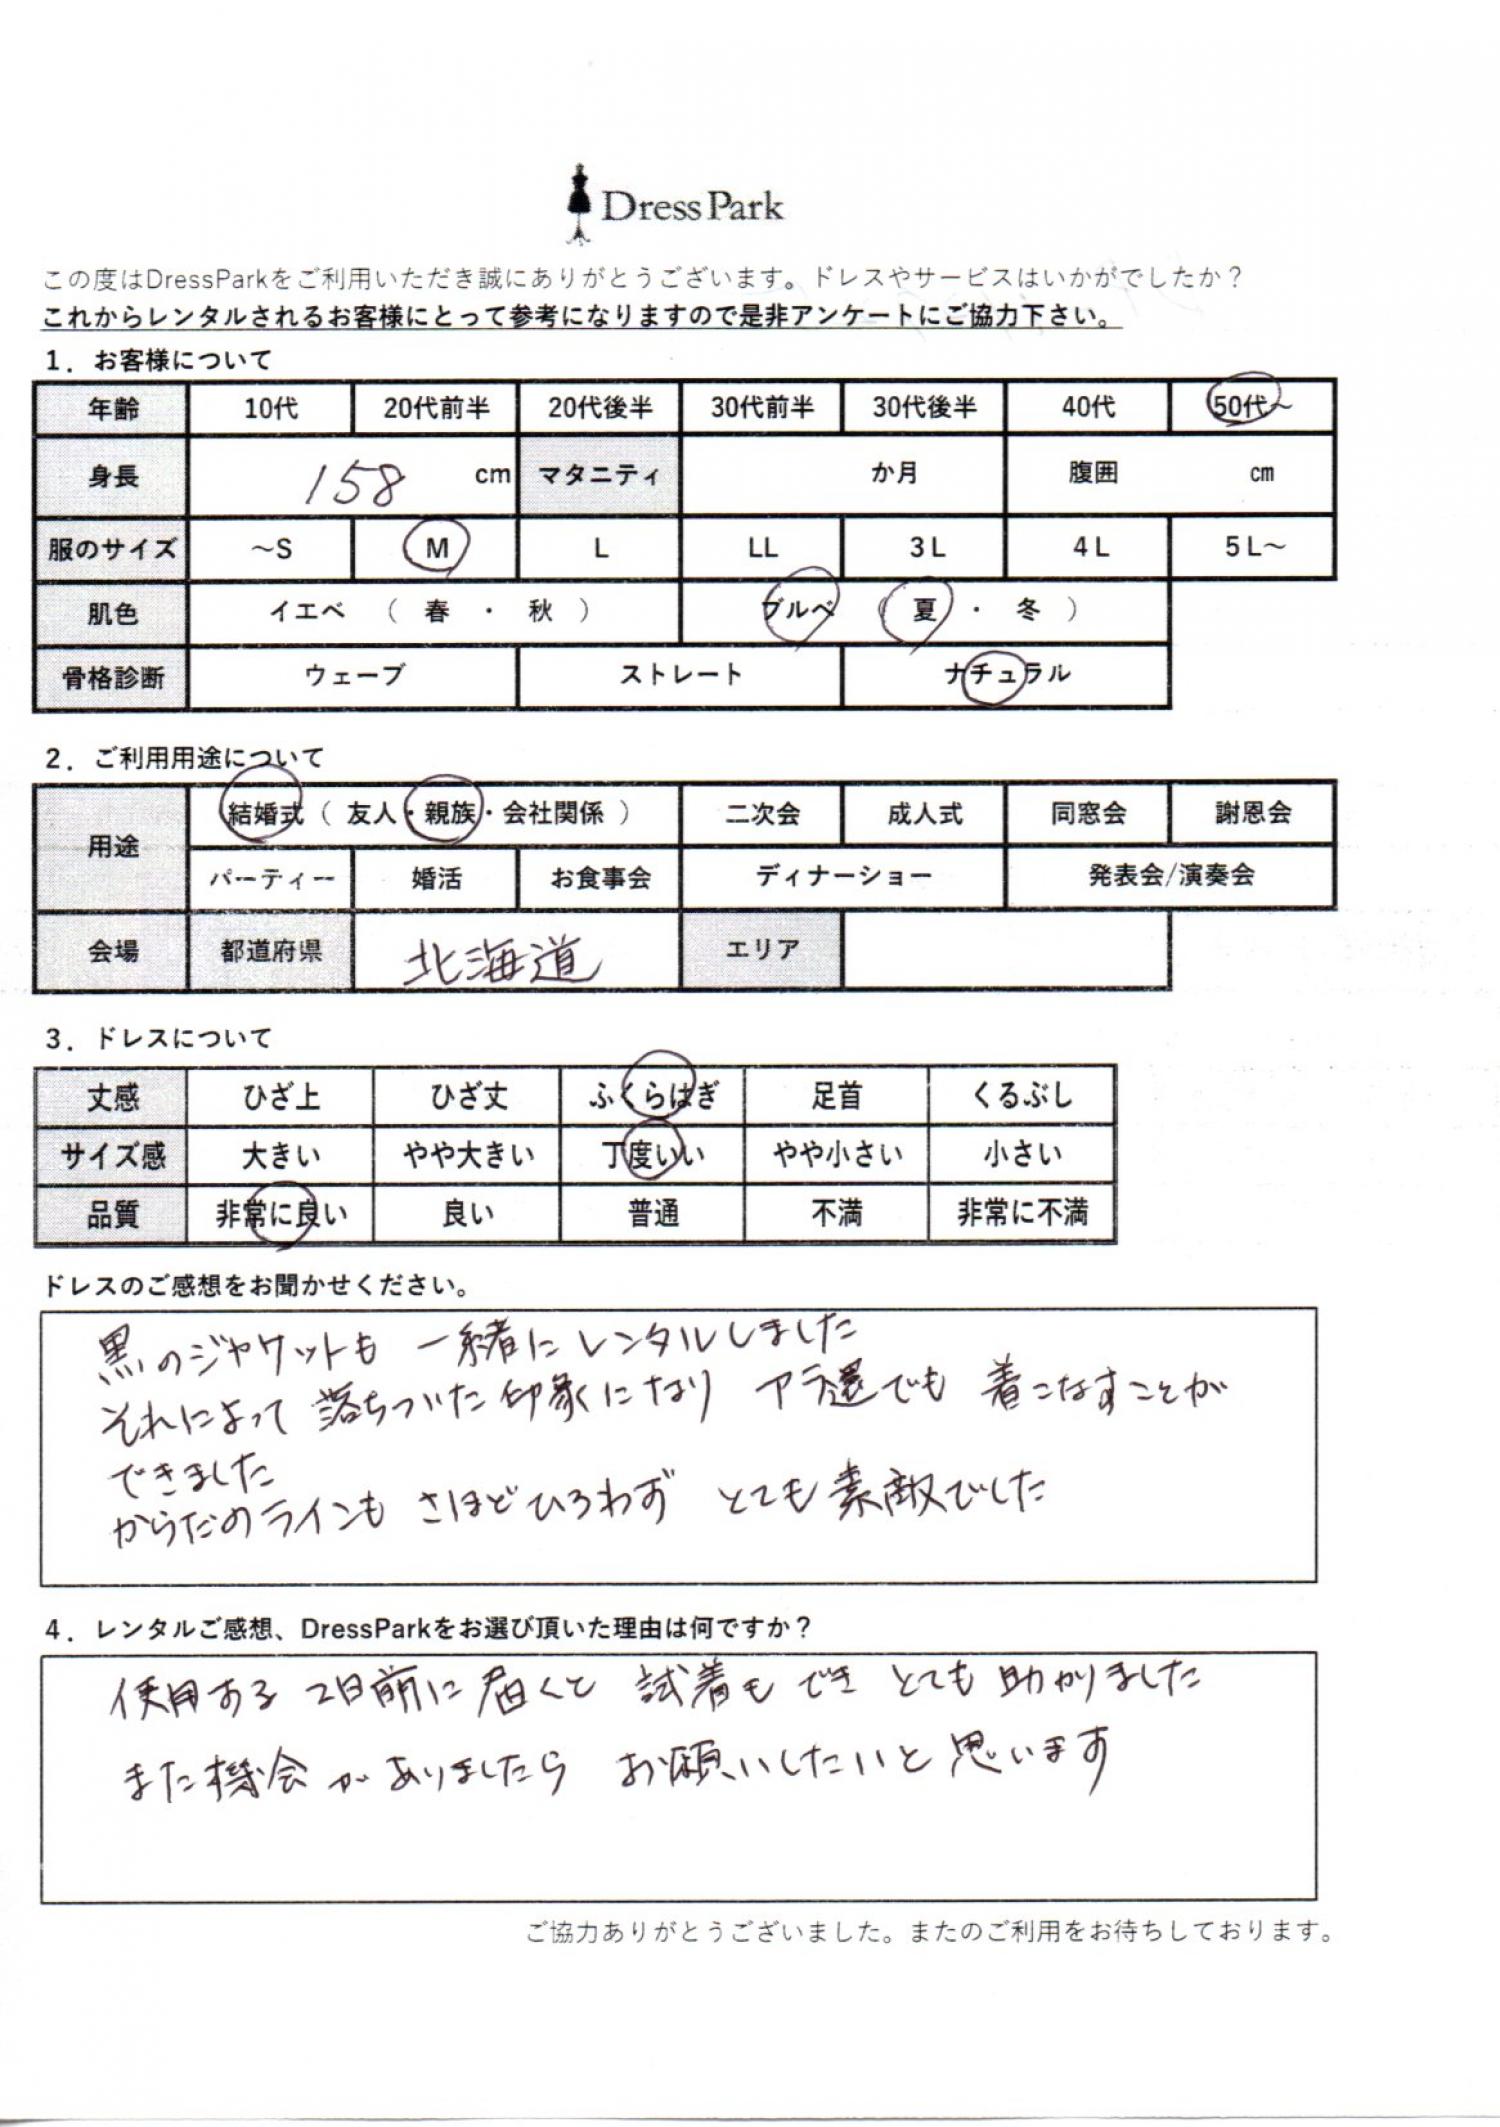 Dress Park
この度はDressParkをご利用いただき誠にありがとうございます。ドレスやサービスはいかがでしたか？
これからレンタルされるお客様にとって参考になりますので是非アンケートにご協力下さい。
1．お客様について
年齢 10代 20代前半 20代後半 30代前半 30代後半 40代 50代～
身長 158 cm マタニティ か月 腹囲 cm
服のサイズ ～S M L LL 3L 4L 5L～
肌色 イエベ （ 春 ・ 秋 ） ブルベ （ 夏 ・ 冬 ）
骨格診断 ウェーブ ストレート ナチュラル
2．ご利用用途について
用途 結婚式（ 友人・親族・会社関係 ） 二次会 成人式 同窓会 謝恩会
パーティー 婚活 お食事会 ディナーショー 発表会/演奏会
会場 都道府県 北海道 エリア
3．ドレスについて
丈感 ひざ上 ひざ丈 ふくらはぎ 足首 くるぶし
サイズ感 大きい やや大きい 丁度いい やや小さい 小さい
品質 非常に良い 良い 普通 不満 非常に不満
ドレスのご感想をお聞かせください。
黒のジャケットも 一緒にレンタルしました
それによって 落ちついた印象になり アラ還でも 着こなすことが
できました
からだのラインも さほどひろわず とても素敵でした
4．レンタルご感想、DressParkをお選び頂いた理由は何ですか？
使用する 2日前に届くと 試着もでき とても助かりました
また機会がありましたら お願いしたいと思います
ご協力ありがとうございました。またのご利用をお待ちしております。